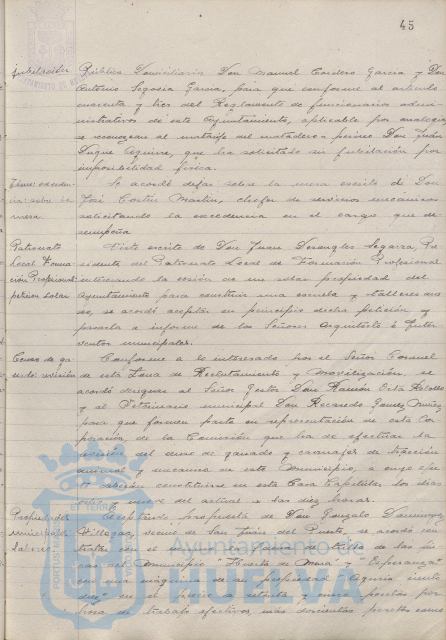 45
jubilación
Pública Domiciliaria Don Manuel Cordero Garcia y Don
Antonio Segovia Garcia, para que conforme al artículo
cuarenta y tres del Reglamento de funcionarios admi-
nistrativos de este Ayuntamiento, aplicable por analogia,
se reconozcan al matarife del matadero Don Juan
Duque Aguirre, que ha solicitado su jubilación por
imposibilidad física.
Se acordó dejar sobre la mesa escrito de Don
José Cortés Martin, chofer de servicios mecánicos
solicitando la excedencia en el cargo que de-
sempeña
Patronato
Local Forma-
ción Profesional
peticion solar
Visto escrito de Don Juan Segarra, Pre-
sidente del Patronato Local de Formación Profesional
interesando la cesión de un solar propiedad del
Ayuntamiento para construir una escuela y talleres en
el, se acordó aceptar en principio dicha petición y
pasarla a informe de los Señores Arquitecto e Inter-
ventor municipales.
Censo de ga-
nado: revisión
Conforme a lo interesado por el Señor Coronel
de esta Zona de Reclutamiento y Movilización, se
acordó designar al Señor Gestor Don Ramón
y al Veterinario municipal Don Recaredo Gomez
para que formen parte en representación de esta Cor-
poración, de la Comisión que ha de efectuar la
revisión del censo de ganado y carruajes de tracción
animal y mecanica de este Municipio, a cuyo fin
deberán constituirse en esta Casa Capitular los dias
y nueve del actual a las diez horas.
Propiedades
municipales
Aceptando propuesta de Don Gonzalo Dominguez
Villegas, vecino de San Juan del Puerto, se acordó con-
tratar con el mismo la de las fin-
cas del municipio "Huerta de Mena" y "Esperanza"
con una máquina de su propiedad
diez" en el precio de setenta y cinco pesetas por
hora de trabajo efectivo, más doscientas pesetas como
Ayuntamiento de
HUELVA